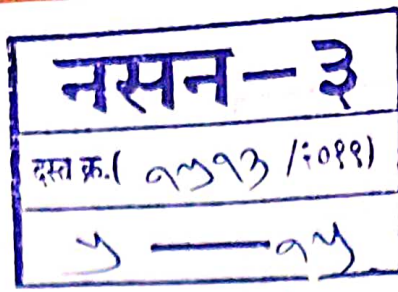 नसन-३
दस्त क्र.( १५१३ /२०११)
५ — १५